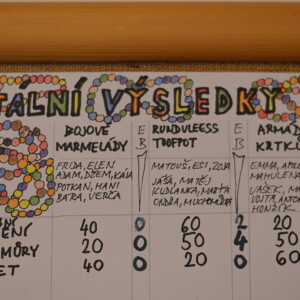 TÁLNÍ VÝSLEDKY
BOJOVÉ MARMELÁDY
E B
RUNDULEESS TOOFTOT
E B
ARMÁ KRTKŮ
FRIDA, ELEN
ADAM, DŽEM, KÁJA
POTKAN, HANI
BÁRA, VERČA
MATOUŠ, ESI, ZOJA
JÁŠA, MATĚJ
KUDLANKA, MARTA
ONDRA, MUCHOMŮRKA
EMMA,
MAHULENA
VAŠEK,
VOJTA,
HONZÍK
ENÍ 40 0 60 2 20
MŮRY 20 0 50 4 50
ET 40 0 20 0 60